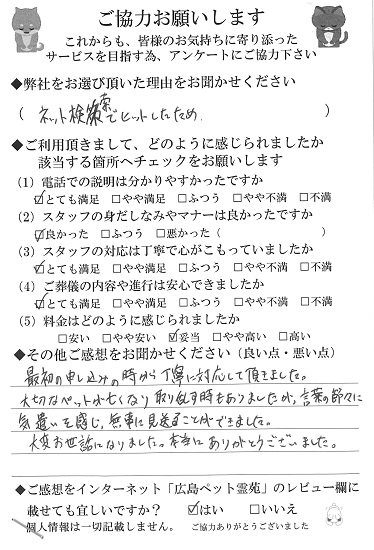 ご協力お願いします
これからも、皆様のお気持ちに寄り添った
サービスを目指す為、アンケートにご協力下さい
◆弊社をお選び頂いた理由をお聞かせください
(ネット検索でヒットしたため。)
◆ご利用頂きまして、どのように感じられましたか
該当する箇所へチェックをお願いします
(1) 電話での説明は分かりやすかったですか
☑とても満足 □やや満足 □ふつう □やや不満 □不満
(2) スタッフの身だしなみやマナーは良かったですか
☑良かった □ふつう □悪かった ( )
(3) スタッフの対応は丁寧で心がこもっていましたか
☑とても満足 □やや満足 □ふつう □やや不満 □不満
(4) ご葬儀の内容や進行は安心できましたか
☑とても満足 □やや満足 □ふつう □やや不満 □不満
(5) 料金はどのように感じられましたか
□安い □やや安い ☑妥当 □やや高い □高い
◆その他ご感想をお聞かせください (良い点・悪い点)
最初の申し込みの時から丁寧に対応して頂きました。
大切なペットが亡くなり取り乱す時もありましたが、言葉の節々に
気遣いを感じ、無事に見送ることができました。
大変お世話になりました。本当にありがとうございました。
◆ご感想をインターネット「広島ペット霊苑」のレビュー欄に
載せても宜しいですか? ☑はい □いいえ
個人情報は一切記載しません。 ご協力ありがとうございました